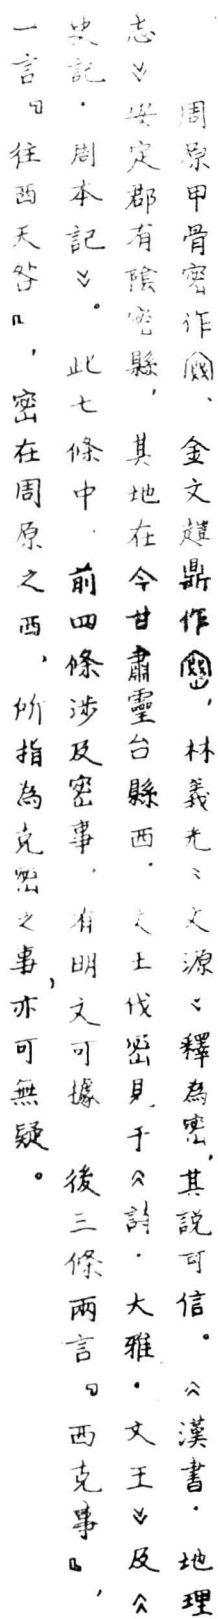 周原甲骨密作、金文趞鼎作，林義光《文源》釋為密，其說可信。《漢書·地理
志》安定郡有陰密縣，其地在今甘肅靈台縣西。文王伐密見于《詩·大雅·文王》及《
史記·周本記》。此七條中，前四條涉及密事，有明文可據。後三條兩言『西克事』，
一言『往西天咎』，密在周原之西，所指為克密之事，亦可無疑。